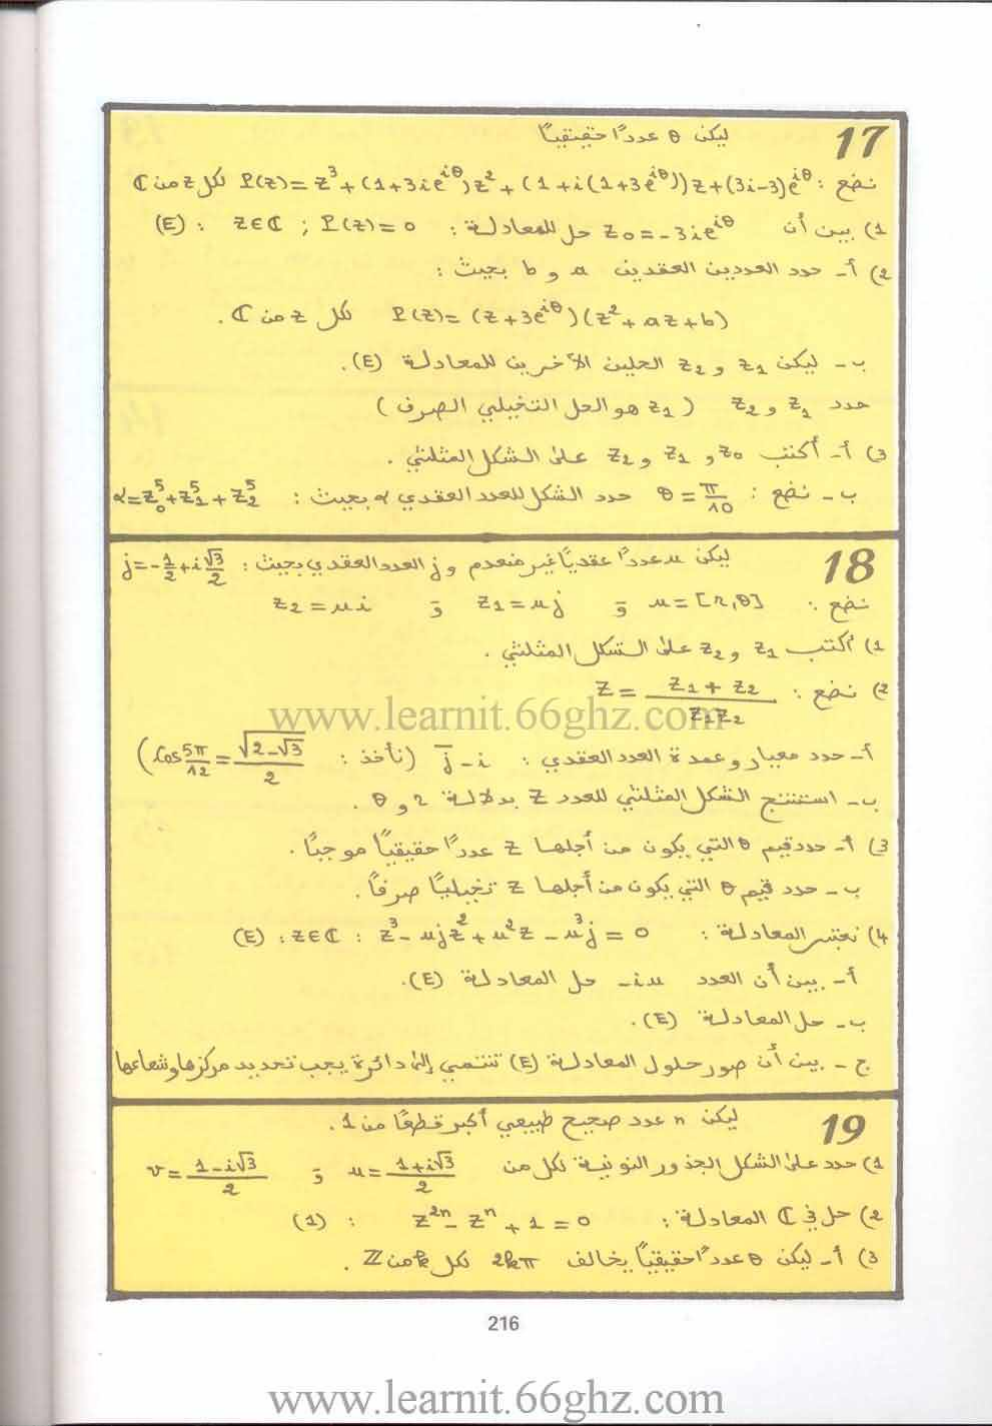 17
ليكن θ عددًا حقيقيًا
نضع : P(z)= z³+(1+3ie^iθ)z²+(1+i(1+3e^iθ))z+(3i-3)e^iθ لكل z من ℂ
1) بين أن z₀=-3ie^iθ حل للمعادلة : z∈ℂ ; P(z)=0 : (E)
2) أ- حدد العددين العقديين a و b بحيث :
P(z)= (z+3e^iθ)(z²+az+b) لكل z من ℂ .
ب- ليكن z₁ و z₂ الحلين الآخرين للمعادلة (E).
حدد z₁ و z₂ (z₁ هو الحل التخيلي الصرف)
3) أ- أكتب z₀ و z₁ و z₂ على الشكل المثلثي .
ب- نضع : θ=π/10 حدد الشكل للعدد العقدي α بحيث : α=z₀⁵+z₁⁵+z₂⁵
18
ليكن u عددًا عقديًا غير منعدم و j العدد العقدي بحيث : j=-1/2+i√3/2
نضع : u=[r,θ] و z₁=uj و z₂=ui
1) أكتب z₁ و z₂ على الشكل المثلثي .
2) نضع : Z= (z₁+z₂)/(z₁z₂)
أ- حدد معيار وعمدة العدد العقدي : j̄-i (نأخذ : cos 5π/12 = √(2-√3)/2)
ب- استنتج الشكل المثلثي للعدد Z بدلالة r و θ .
3) أ- حدد قيم θ التي يكون من أجلها Z عددًا حقيقيًا موجبًا .
ب- حدد قيم θ التي يكون من أجلها Z تخيليًا صرفًا .
4) نعتبر المعادلة : z³-ujz²+u²z-u³j=0 : z∈ℂ : (E)
أ- بين أن العدد -iu حل المعادلة (E).
ب- حل المعادلة (E).
ج- بين أن صور حلول المعادلة (E) تنتمي إلى دائرة يجب تحديد مركزها وشعاعها
19
ليكن n عدد صحيح طبيعي أكبر قطعًا من 1 .
1) حدد على الشكل الجذور النونية لكل من u=(1+i√3)/2 و v=(1-i√3)/2
2) حل في ℂ المعادلة : z²ⁿ-zⁿ+1=0 : (1)
3) أ- ليكن θ عددًا حقيقيًا يخالف 2kπ لكل k من ℤ .
216
www.learnit.66ghz.com
www.learnit.66ghz.com